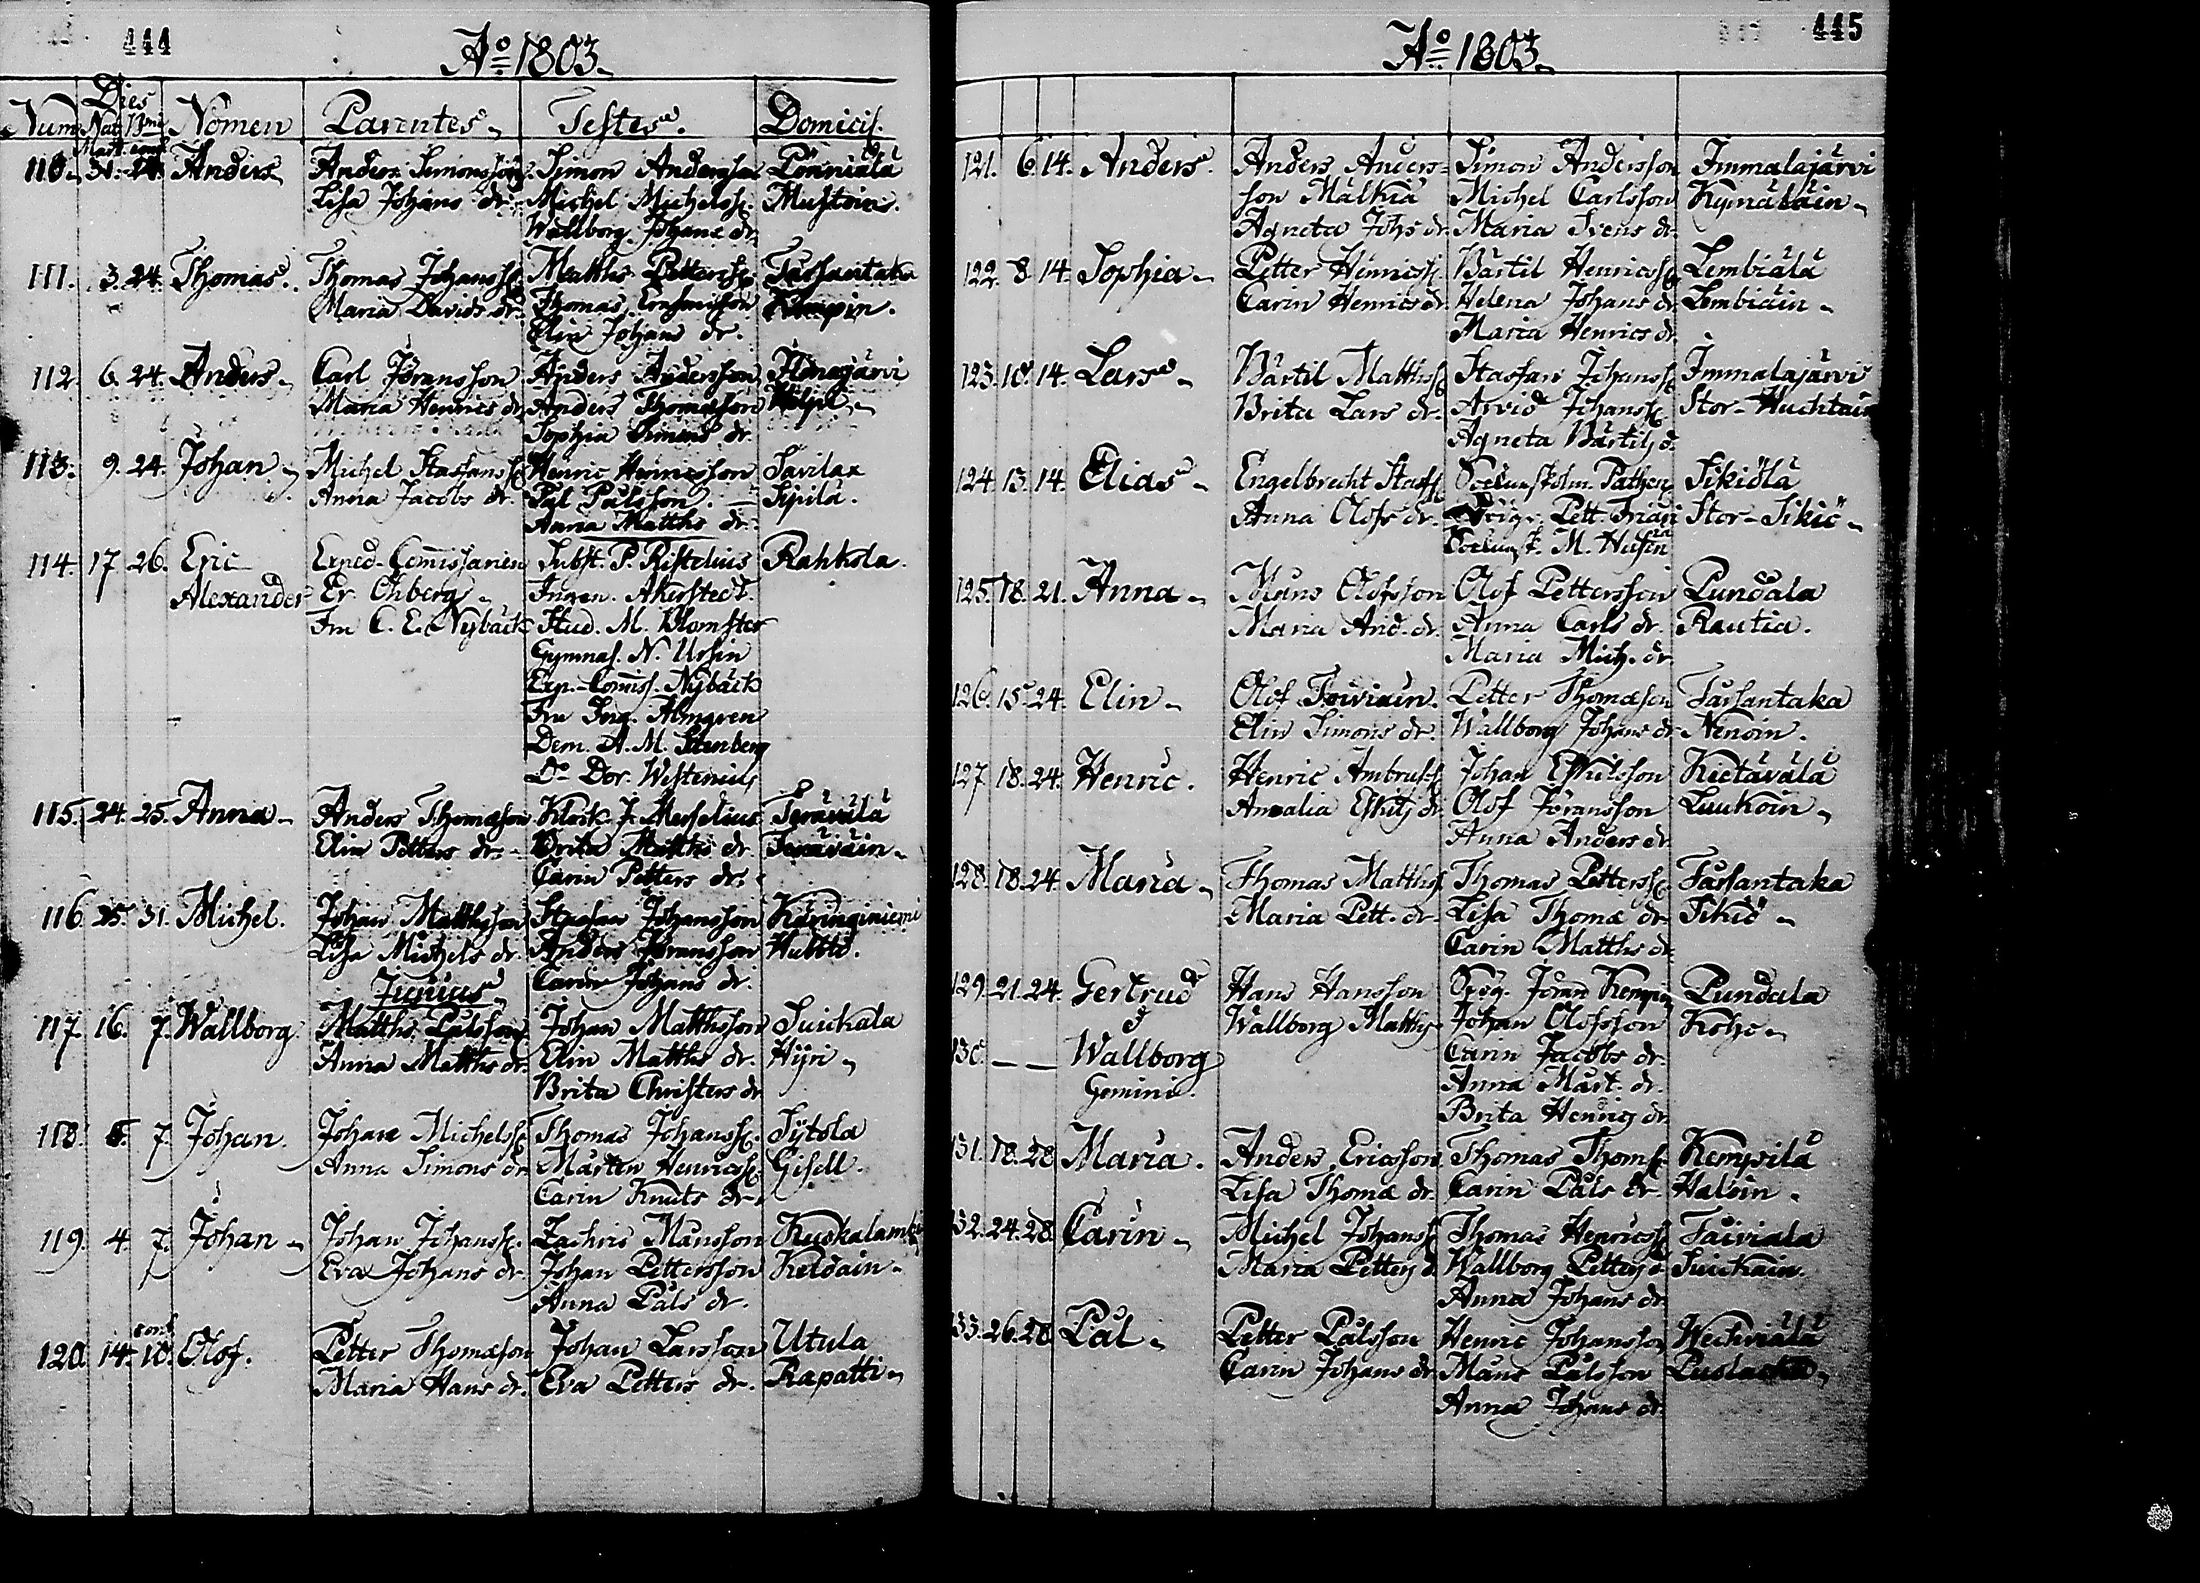 444
A:o 1803.
Num Dies Nat. B:mi Nomen Parentes Testes. Domicil.
Mart. conf.
110. 31. 24. Anders Anders Simonsson Simon Andersson Pönniälä
Lisa Johans dr. Michel Michelss. Mustoin.
Wallborg Johans dr.
111. 3. 24. Thomas. Thomas Johanss. Matths Petterss. Tarsantaka
Maria Davids dr. Thomas Kempin.
Elin Johans dr.
112. 6. 24. Anders Carl Jöransson Anders Andersson
Maria Henrics dr. Anders Thomasson
Sophia Simons dr.
113. 9. 24. Johan Michel Staffanss. Henric Henricsson Savilax
Anna Jacobs dr. Pål Pålsson. Sipilä.
Anna Matths dr.
114. 17. 26. Eric Exped. Comissarien Subst. P. Ristelius Rahkola.
Alexander Er. Ohberg Ingen. Akerstedt.
Fru C. E. Nybäck Stud. M. Blomster
Gymnas. N. Ursin
Exp. Comiss. Nybäck
Fru Ing. Almgren
Dem. A. M. Stenberg
D:o Dor. Westenius
115. 24. 25. Anna Anders Thomasson Klock. J. Messelius Terävälä
Elin Petters dr. Brita Matths dr. Teräväin
Carin Petters dr.
116. 25. 31. Michel. Johan Matthsson Staffan Johansson Käringiniemi
Lisa Michels dr. Anders Jöransson Huttu.
Junius Carin Johans dr.
117. 16. 7. Wallborg Matths Pålsson Johan Matthsson Suickala
Anna Matths dr. Elin Matths dr. Hyri
Brita Christers dr
118. 5. 7. Johan. Johan Michelss. Thomas Johanss. Sytola
Anna Simons dr. Mårten Henricss. Gisell.
Carin Knuts dr.
119. 4. 7. Johan Johan Johanss. Zachris Månsson Ruokalambi
Eva Johans dr. Johan Pettersson Keldain
Anna Påls dr.
conf.
120. 14. 10. Olof. Petter Thomasson Johan Larsson Utula
Maria Hans dr. Eva Petters dr. Rapatti
445
A:o 1803.
121. 6. 14. Anders. Anders Anders- Simon Andersson Immalajärvi
son Mälkiä Michel Carlsson Kymäläin
Agneta Johs dr. Maria Svens dr.
122. 8. 14. Sophia Petter Henricss. Bärtil Henricss. Lembiälä
Carin Henrics dr. Helena Johans dr. Lembiäin
Maria Henrics dr.
123. 10. 14. Lars Bärtil Matthss. Staffan Johanss. Immalajärvi
Brita Lars dr. Arvid Johanss. Stor-Huchtain
Agneta Bärtils d.
124. 13. 14. Elias Engelbrecht Staffs. Sikiölä
Anna Olofs dr. Pett. Stor-Sikiö
M. Husin
125. 18. 21. Anna Måns Olofsson Olof Pettersson Pundala
Maria And. dr. Anna Carls dr. Rautia.
Maria Mich. dr.
126. 15. 24. Elin Olof Toiviain. Petter Thomasson Tarsantaka
Elin Simons dr. Wallborg Johans dr. Nenoin.
127. 18. 24. Henric. Henric Ambruss. Johan Eskilsson Kietävälä
Amalia Eskils dr. Olof Jöransson Luukoin
Anna Anders dr.
128. 18. 24. Maria Thomas Matthss. Thomas Petterss. Tarsantaka
Maria Pett. dr. Lisa Thomæ dr. Sikiö
Carin Matths dr.
129. 21. 24. Gertrud Hans Hansson Jöran Kempin Pundala
& Wallborg Matths Johan Olofsson Koho
130. — — Wallborg Carin Jacobs dr.
Gemini. Anna Mårt. dr.
Brita Henrics dr.
131. 18. 28. Maria. Anders Ericsson Thomas Thoms. Kempilä
Lisa Thomæ dr. Carin Påls dr. Haloin
132. 24. 28. Carin Michel Johanss. Thomas Henricss. Toiviala
Maria Petters d. Wallborg Petters d. Suickain.
Anna Johans dr.
133. 26. 28. Pål Petter Pålsson Henric Johansson Wechviälä
Carin Johans dr. Måns Pålsson
Anna Johans dr.